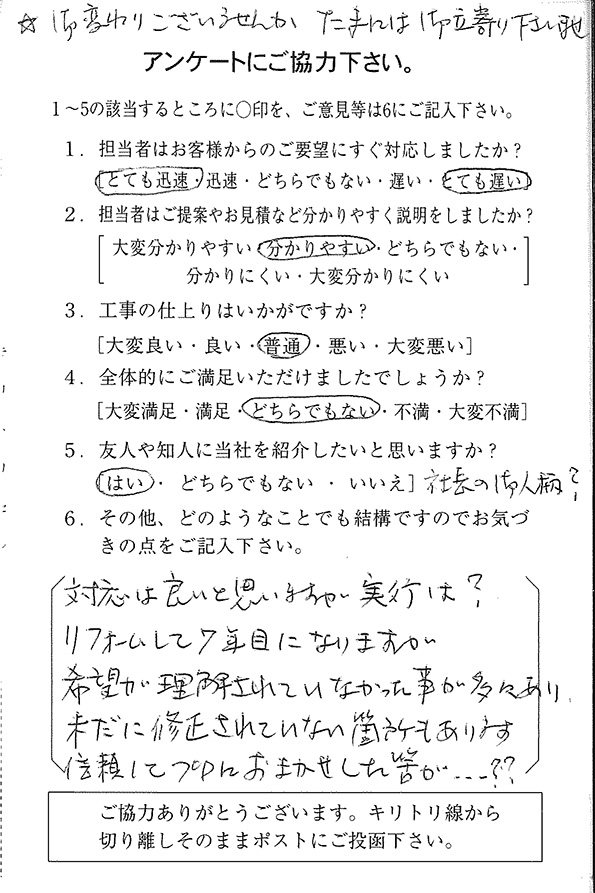 ☆ 御変わりございませんか たまには御立寄り下さい
アンケートにご協力下さい。
1~5の該当するところに○印を、ご意見等は6にご記入下さい。
1. 担当者はお客様からのご要望にすぐ対応しましたか?
[とても迅速・迅速・どちらでもない・遅い・とても遅い]
2. 担当者はご提案やお見積など分かりやすく説明をしましたか?
[大変分かりやすい・分かりやすい・どちらでもない・
分かりにくい・大変分かりにくい]
3. 工事の仕上りはいかがですか?
[大変良い・良い・普通・悪い・大変悪い]
4. 全体的にご満足いただけましたでしょうか?
[大変満足・満足・どちらでもない・不満・大変不満]
5. 友人や知人に当社を紹介したいと思いますか?
[はい・ どちらでもない ・ いいえ] 社長の御人柄?
6. その他、どのようなことでも結構ですのでお気づ
きの点をご記入下さい。
対応は良いと思いますが 実行は?
リフォームして7年目になりますが
希望が理解されていなかった事が多々あり
未だに修正されていない箇所もあります
信頼してプロにおまかせした筈が...??
ご協力ありがとうございます。キリトリ線から
切り離しそのままポストにご投函下さい。